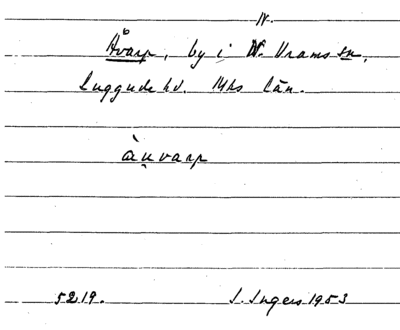 N.
Åvarp, by i N. Vrams sn,
Luggude hd. Mhs län.
ànvarp
5219. I. Ingers 1953